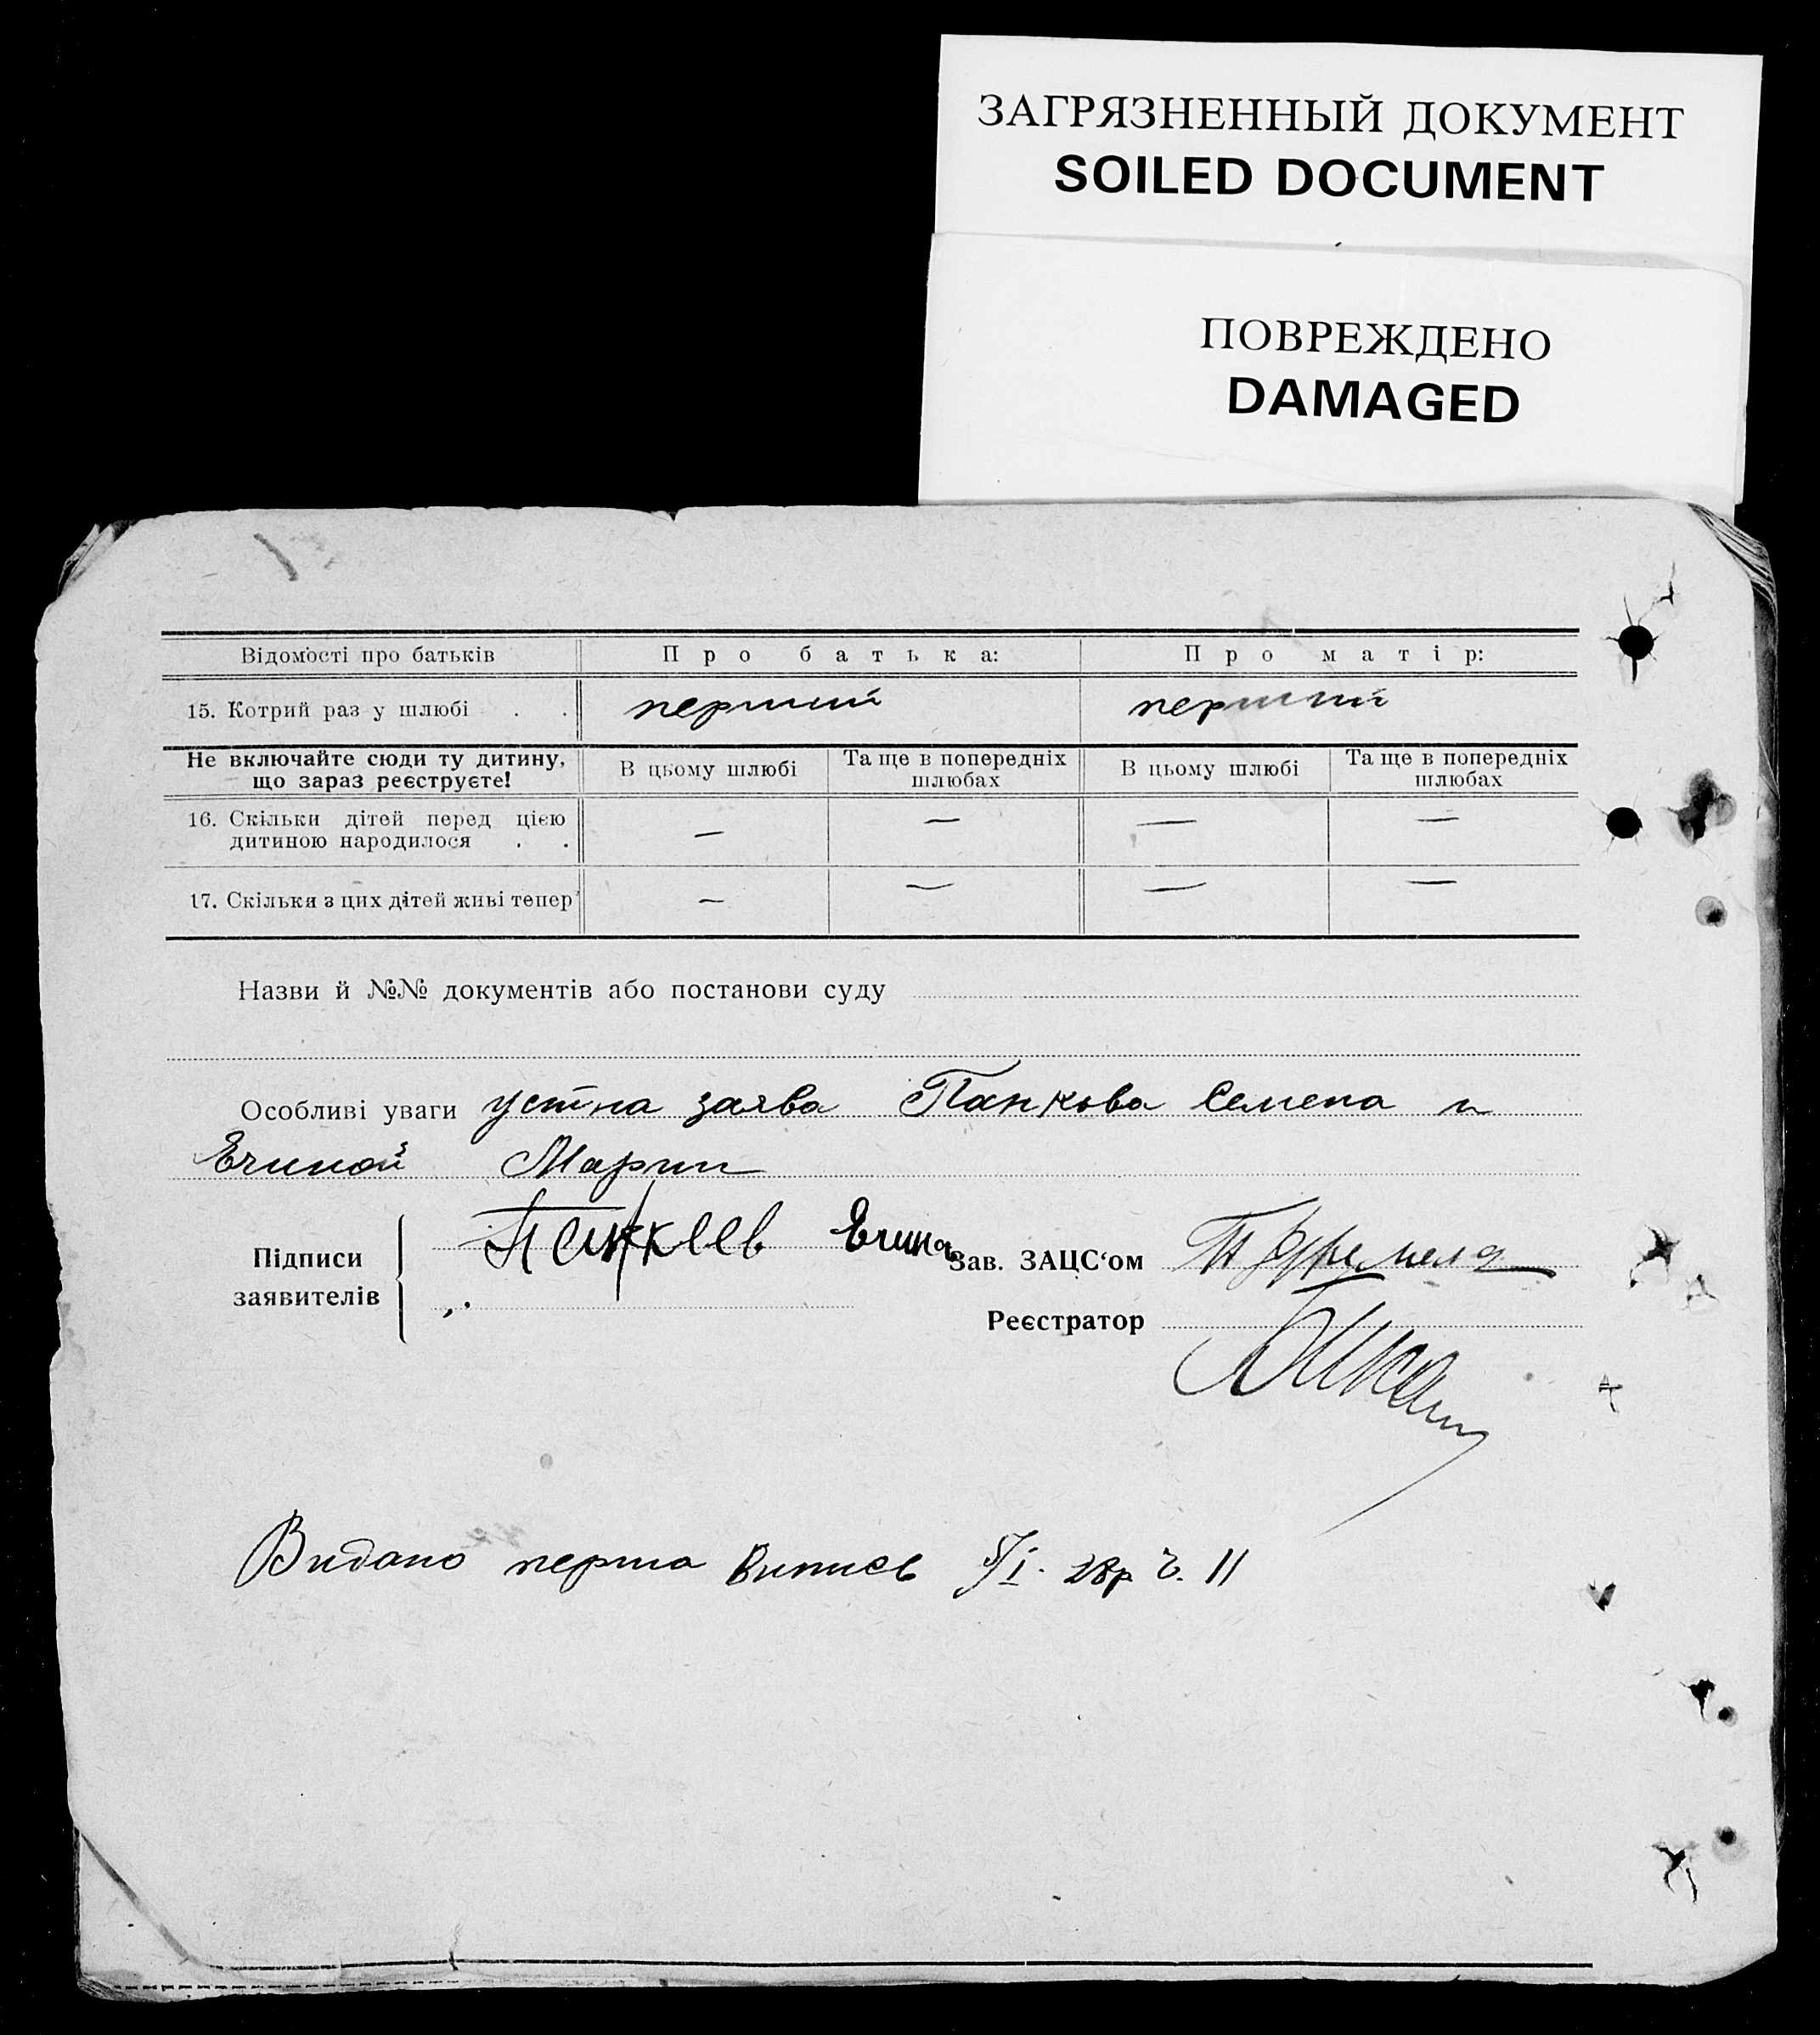 ЗАГРЯЗНЕННЫЙ ДОКУМЕНТ
SOILED DOCUMENT
ПОВРЕЖДЕНО
DAMAGED
Відомості про батьків Про батька: Про матір:
15. Котрий раз у шлюбі . . перший перший
Не включайте сюди ту дитину, що зараз реєструєте! В цьому шлюбі Та ще в попередніх шлюбах В цьому шлюбі Та ще в попередніх шлюбах
16. Скільки дітей перед цією дитиною народилося . . — — — —
17. Скільки з цих дітей живі тепер — — — —
Назви й №№ документів або постанови суду
Особливі уваги устна заява Панкова Семена и
Ечиной Марии
Підписи заявителів Ечина
Зав. ЗАЦС‘ом
Реєстратор
Видано перша выпись 5/I. 28р. Ч. 11